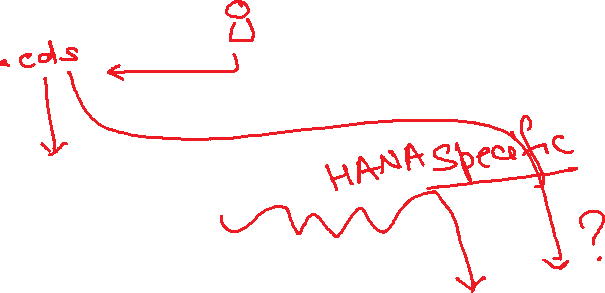 .cds
HANA Specific
?